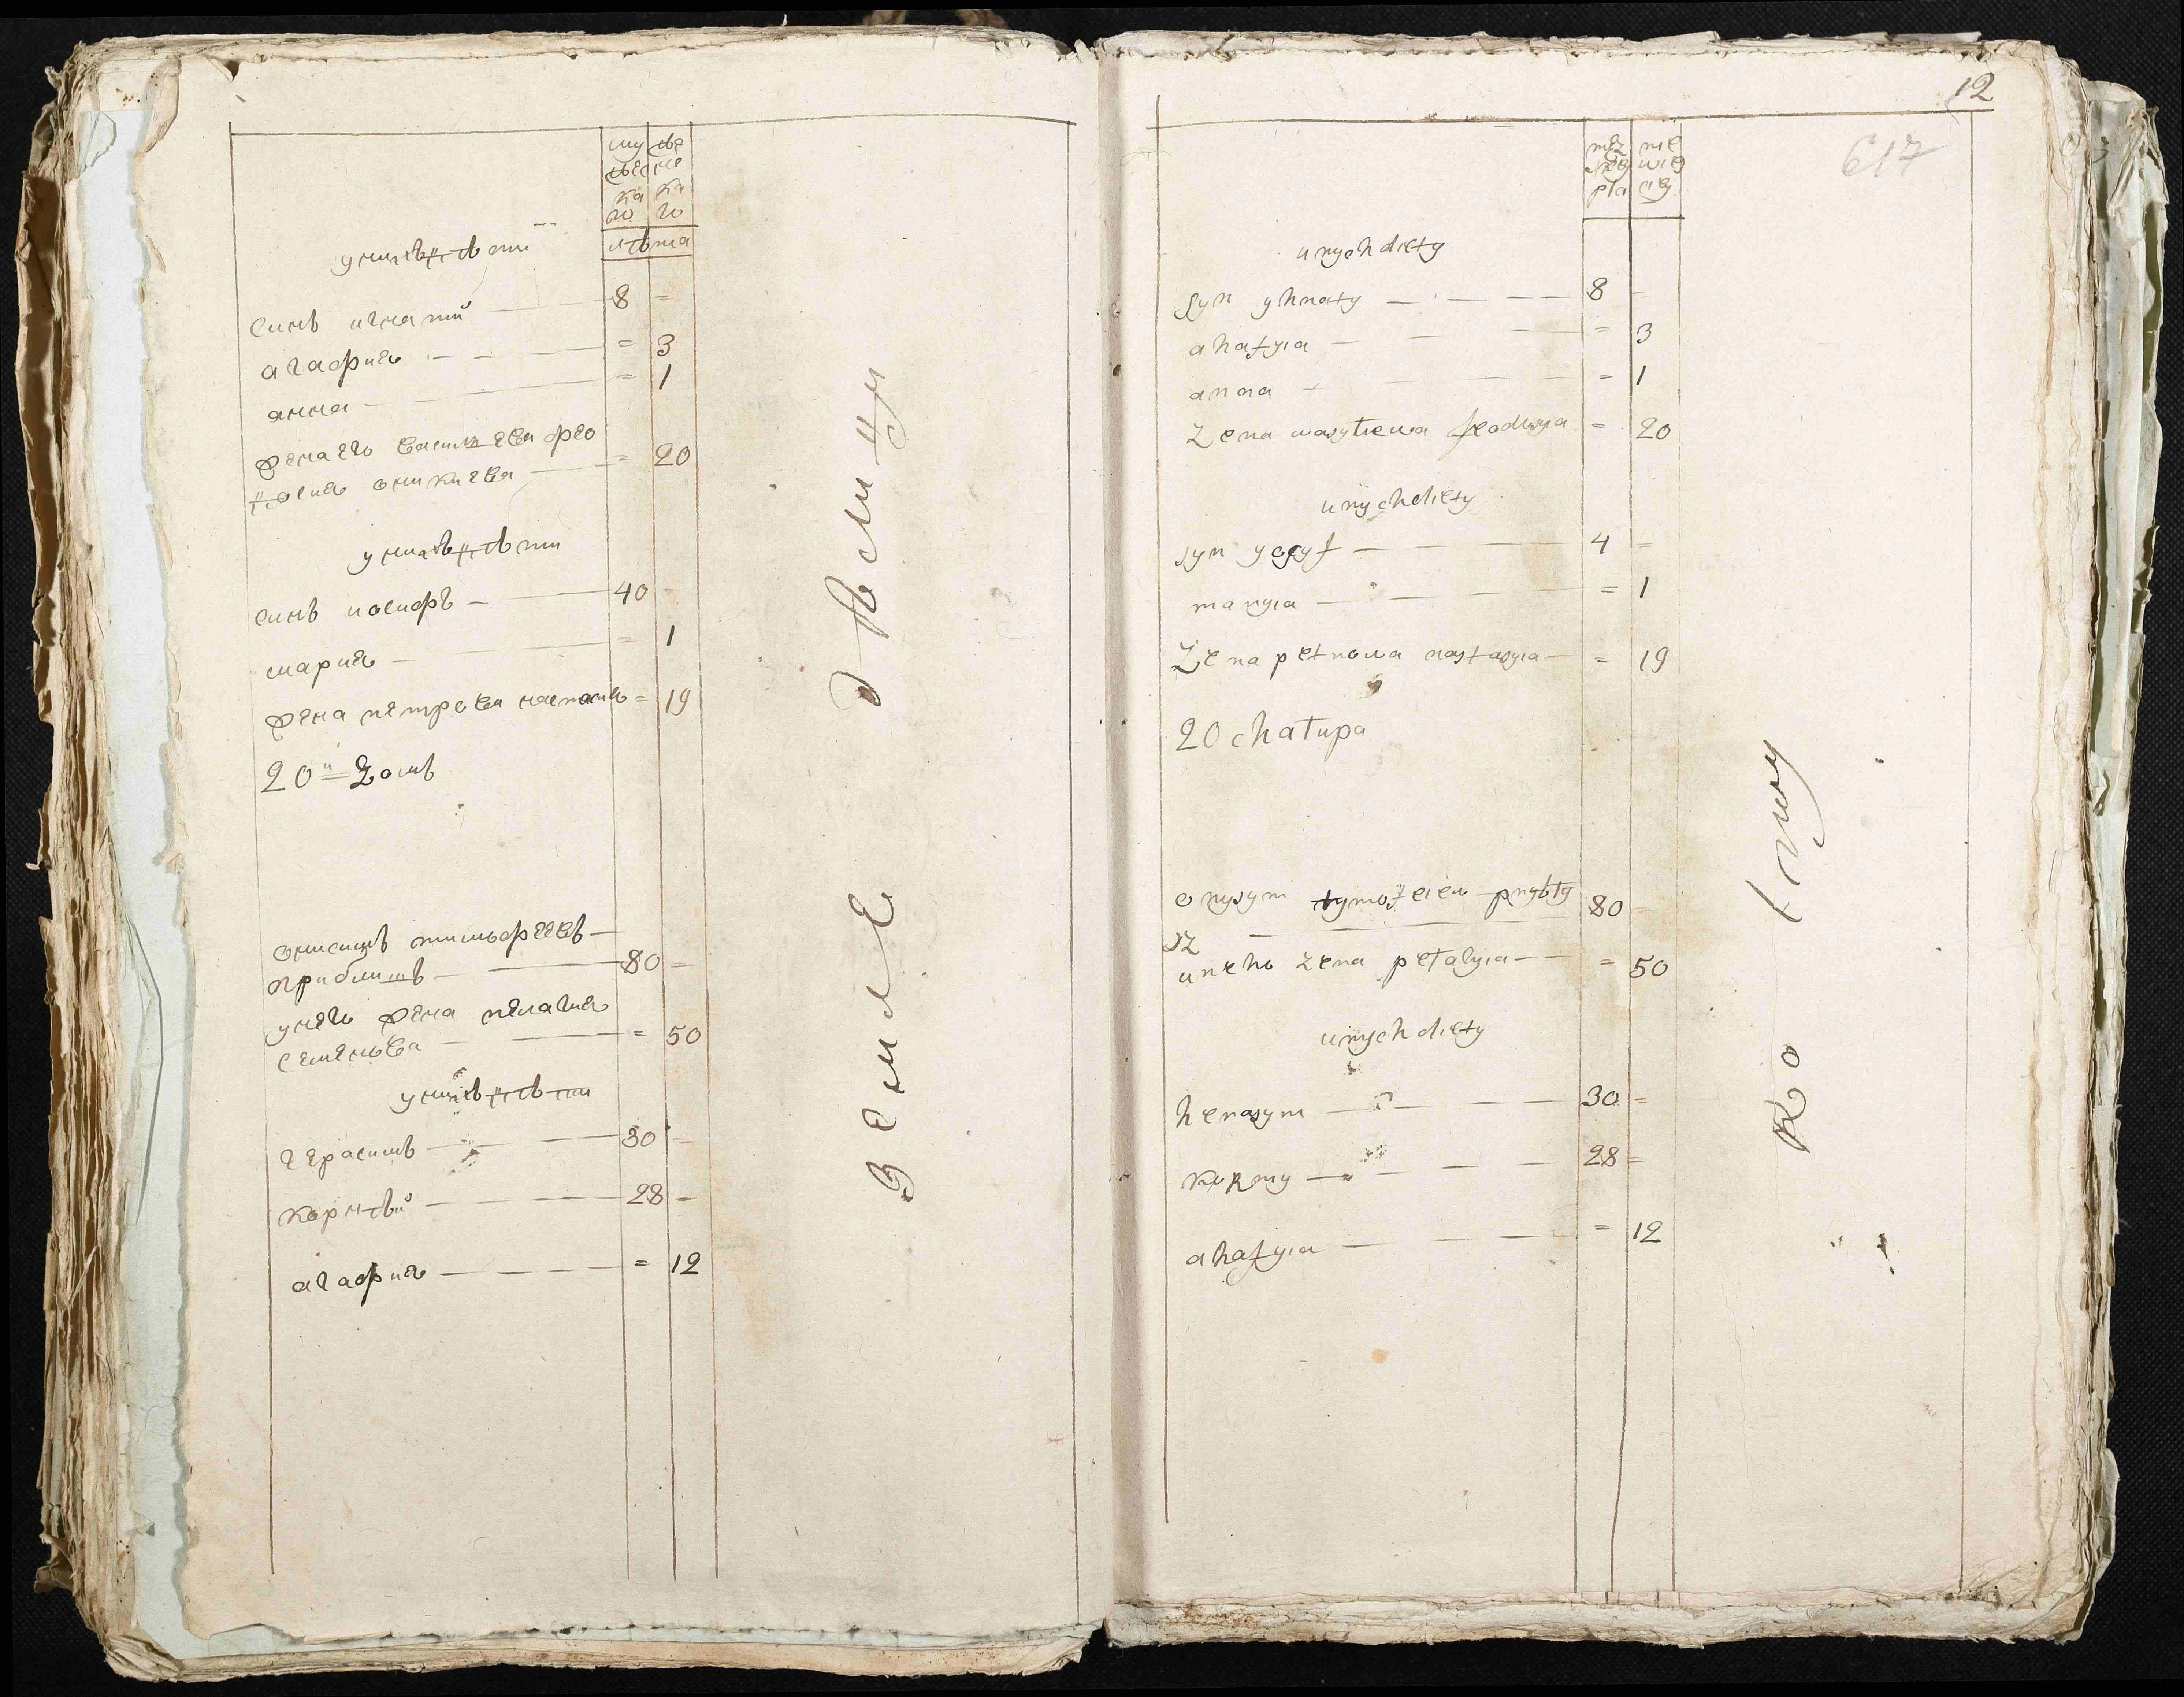 му же
жес нс
ка ка
го го
лѣта
у нихъ дѣти
синъ игнатий 8 =
агафиѧ = 3
анна = 1
жена его василева фео
досиѧ оникиева = 20
у нихъ дѣти
синъ иосифъ 40 =
мариѧ = 1
жена петрова настасиѧ = 19
20й домъ
онисимъ тимофеевъ
прибилишъ 80 =
у него жена пелагиѧ
семенова = 50
у нихъ дѣти
герасимъ 30 =
корнѣй 28 =
агафиѧ = 12
земле дѣлцу
12
617
męz nie
skey wie
pła cey
u nych diety
syn yhnaty 8 =
ahafyia = 3
anna = 1
żena wasyliewa feodosya = 20
u nych diety
syn yosyf 4 =
maryia = 1
Żena petrowa nastasyia = 19
20 chałupa
onysym tymofeiew prybły 80 =
sz
u neho żena pełahyia = 50
u nych diety
herasym 30 =
korney 28 =
ahafyia = 12